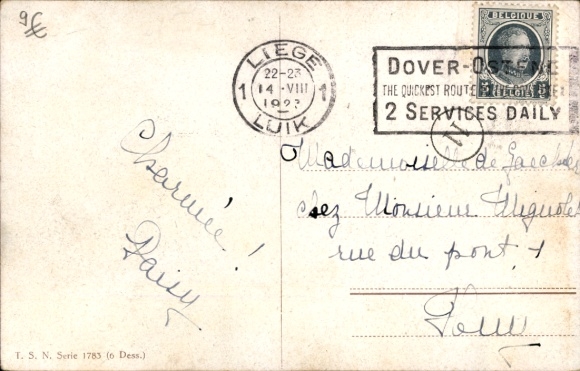 9€
LIEGE
22-23
14 VIII
1 1
LUIK
BELGIQUE
5 BELGIË 5
DOVER-OSTENE
THE QUICKEST ROUTE
2 SERVICES DAILY
11
Charmée!
Daisy
Mademoiselle de
chez Monsieur Mignolet
rue du pont, 1
T. S. N. Serie 1783 (6 Dess.)